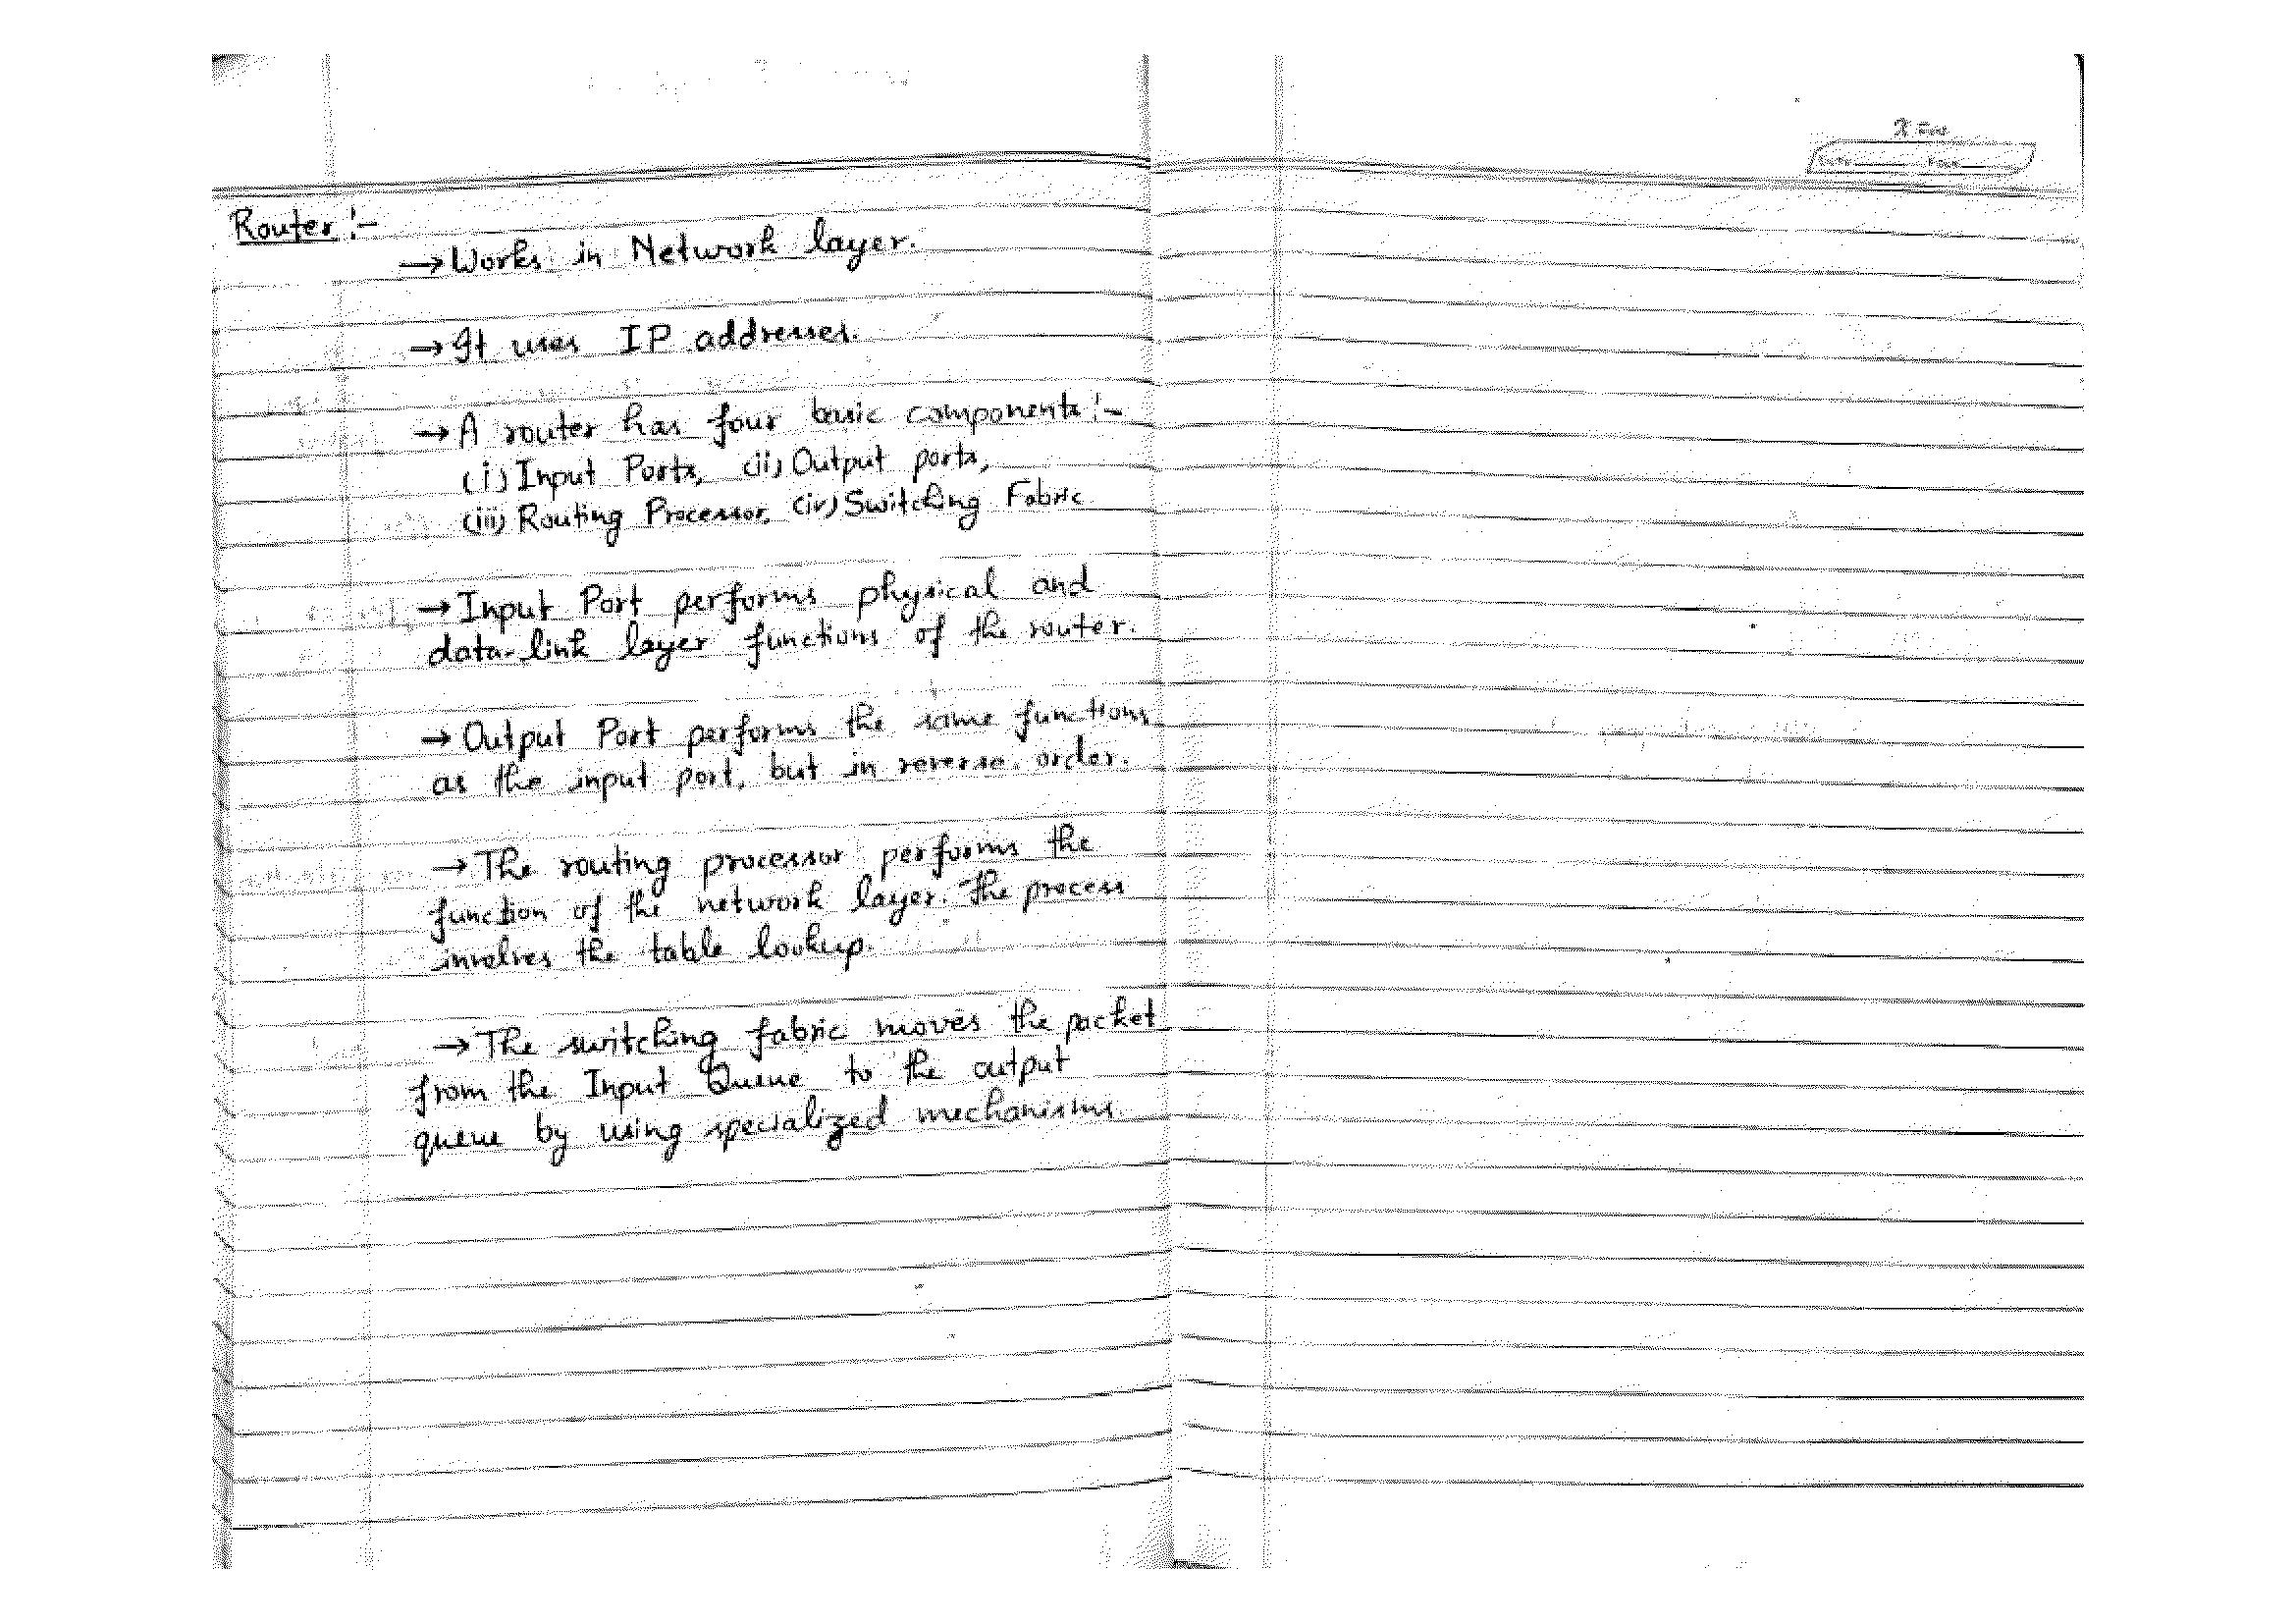 Router :-
→ Works in Network layer.
→ It uses IP addresses.
→ A router has four basic components :-
(i) Input Ports, (ii) Output ports,
(iii) Routing Processor, (iv) Switching Fabric
→ Input Port performs physical and
data-link layer functions of the router.
→ Output Port performs the same functions
as the input port, but in reverse order.
→ The routing processor performs the
function of the network layer. The process
involves the table lookup.
→ The switching fabric moves the packet
from the Input Queue to the output
queue by using specialized mechanisms.